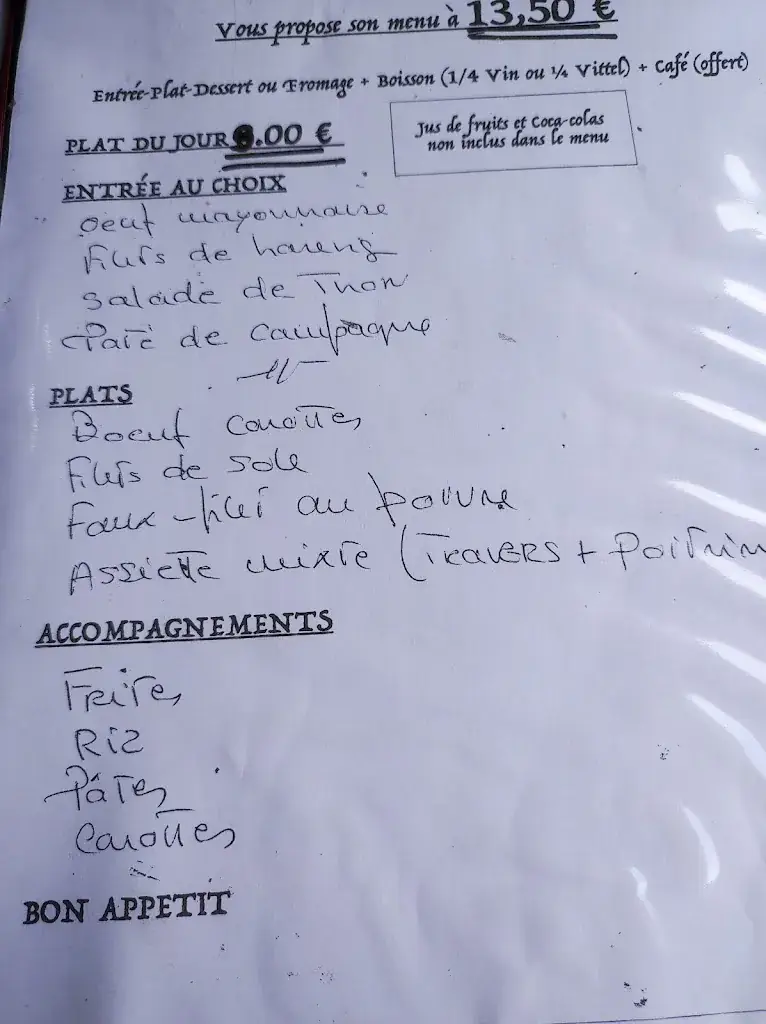 Vous propose son menu à 13,50 €
Entrée-Plat-Dessert ou Fromage + Boisson (1/4 Vin ou ¼ Vittel) + Café (offert)
Jus de fruits et Coca-colas
non inclus dans le menu
PLAT DU JOUR 8.00 €
ENTRÉE AU CHOIX
Oeuf mayonnaise
Filets de hareng
Salade de Thon
Paté de campagne
PLATS
Boeuf Carottes
Filets de sole
Faux-filet au poivre
Assiette mixte (Travers + Poitrin
ACCOMPAGNEMENTS
Frites
Riz
Pâtes
Carottes
BON APPETIT